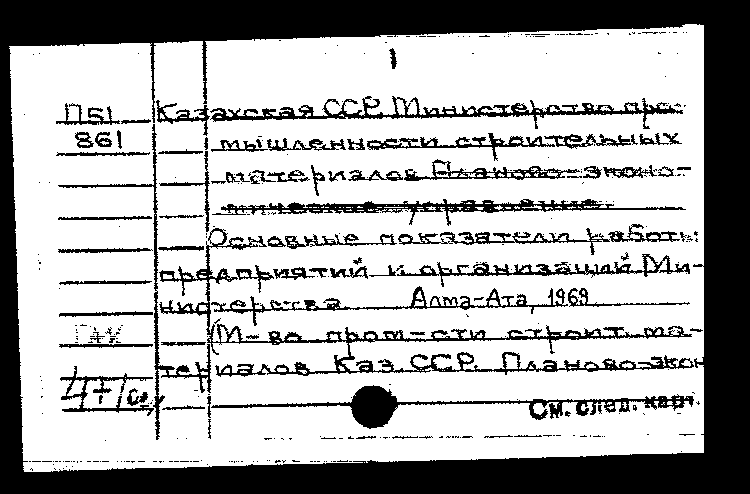 1
П51 Казахская ССР. Министерство про-
861 мышленности строительных
материалов Планово-эконо-
мическое управление.
Основные показатели работы
предприятий и организаций Ми-
нистерства. Алма-Ата, 1969
(М-во пром-сти строит. ма-
териалов Каз. ССР. Планово-экон
См. след. карт.